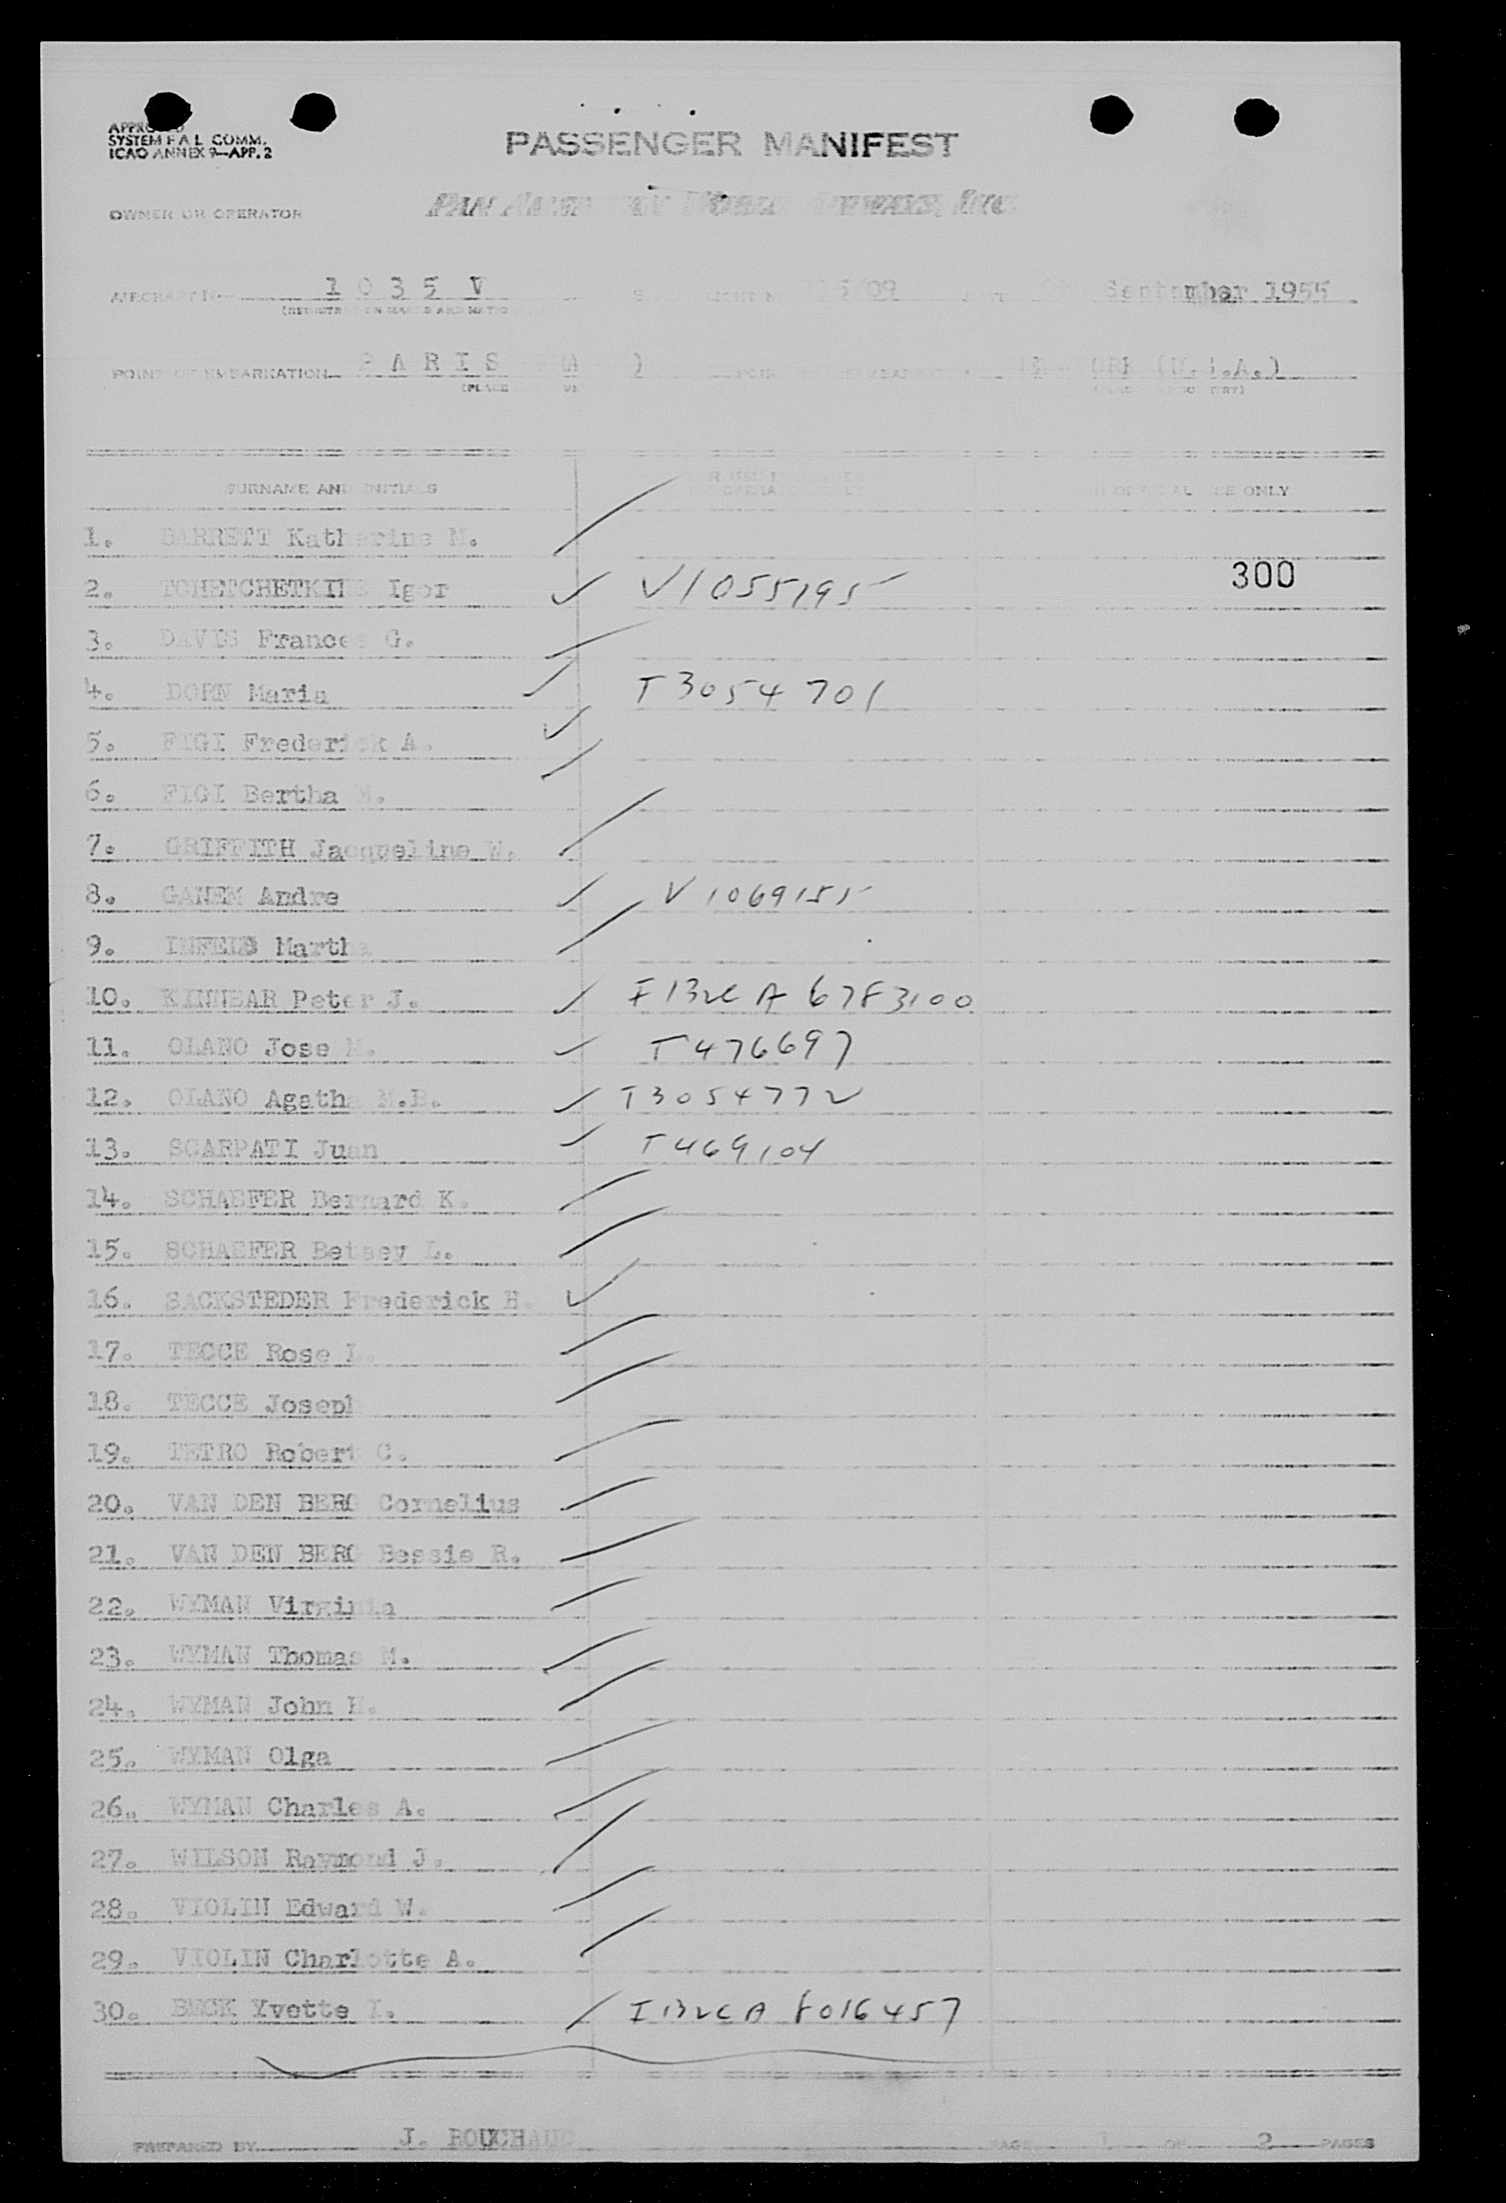 APPROVED
SYSTEM F A L COMM.
ICAO ANNEX 9—APP. 2
PASSENGER MANIFEST
OWNER OR OPERATOR PAN AMERICAN WORLD AIRWAYS, INC.
AIRCRAFT 1 0 3 5 V September 1955
POINT OF EMBARKATION P A R I S (U.S.A.)
(PLACE
SURNAME AND INITIALS OFFICIAL USE ONLY
1. BARRETT Katherine M.
2. TCHETCHETKINE Igor V1055195 300
3. DAVIS Frances G.
4. DORN Maria T3054701
5. FIGI Frederick A.
6. FIGI Bertha M.
7. GRIFFITH Jacqueline W.
8. GANEM Andre V1069155
9. INFELD Martha
10. KINNEAR Peter J. 6783100
11. OLANO Jose M. T476697
12. OLANO Agatha M.B. T3054772
13. SCARPATI Juan T469104
14. SCHAEFER Bernard K.
15. SCHAEFER Betsey L.
16. SACKSTEDER Frederick H.
17. TECCE Rose L.
18. TECCE Joseph
19. TETRO Robert C.
20. VAN DEN BERG Cornelius
21. VAN DEN BERG Bessie R.
22. WYMAN Virginia
23. WYMAN Thomas M.
24. WYMAN John H.
25. WYMAN Olga
26. WYMAN Charles A.
27. WILSON Raymond J.
28. VIOLIN Edward W.
29. VIOLIN Charlotte A.
30. BECK Yvette I. 8016457
PREPARED BY J. BOUCHAUD PAGE 1 OF 2 PAGES